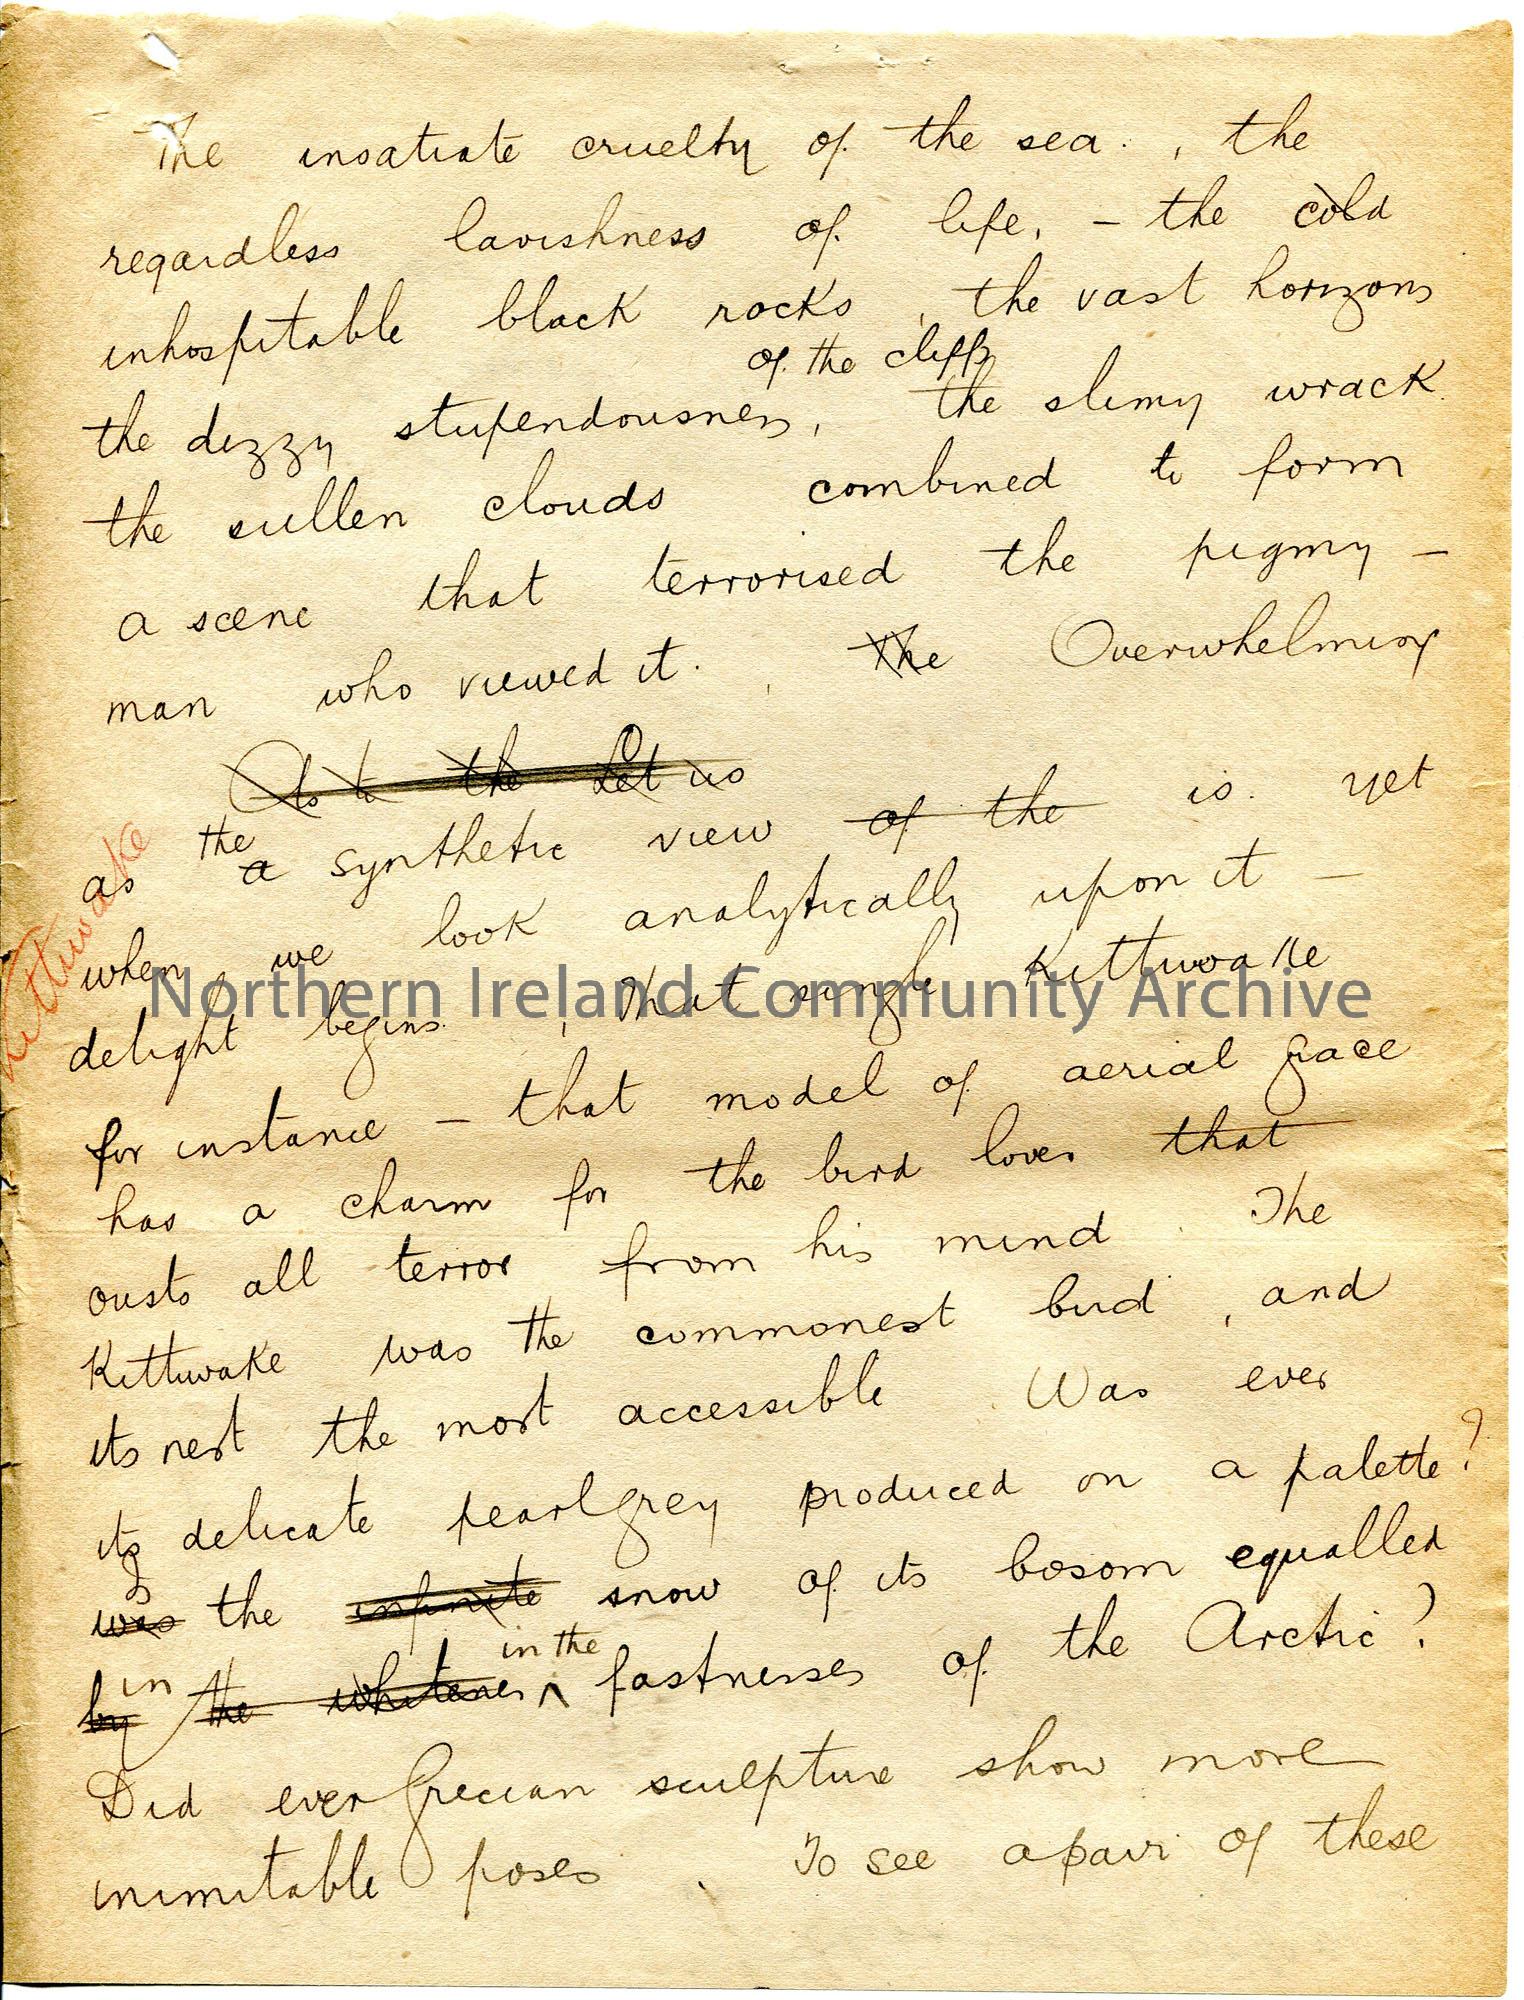 The insatiate cruelty of the sea. , the
regardless lavishness of life, – the cold
inhospitable black rocks, the vast horizons
of the cliffs
the dizzy stupendousness, the slimy wrack
the sullen clouds combined to form
a scene that terrorised the pigmy –
man who viewed it. The Overwhelming
As to the Let us
the
as a synthetic view of the is yet
when we look analytically upon it –
Kittiwake
delight begins. That single Kittiwake
Northern Ireland Community Archive
for instance – that model of aerial grace
has a charm for the bird lover that
ousts all terror from his mind. The
Kittiwake was the commonest bird, and
its nest the most accessible. Was ever
its delicate pearl grey produced on a palette?
was the infinite snow of its bosom equalled
in in the
by the whiteness ^ fastnesses of the Arctic?
Did ever Grecian sculpture show more
inimitable poses. To see a pair of these